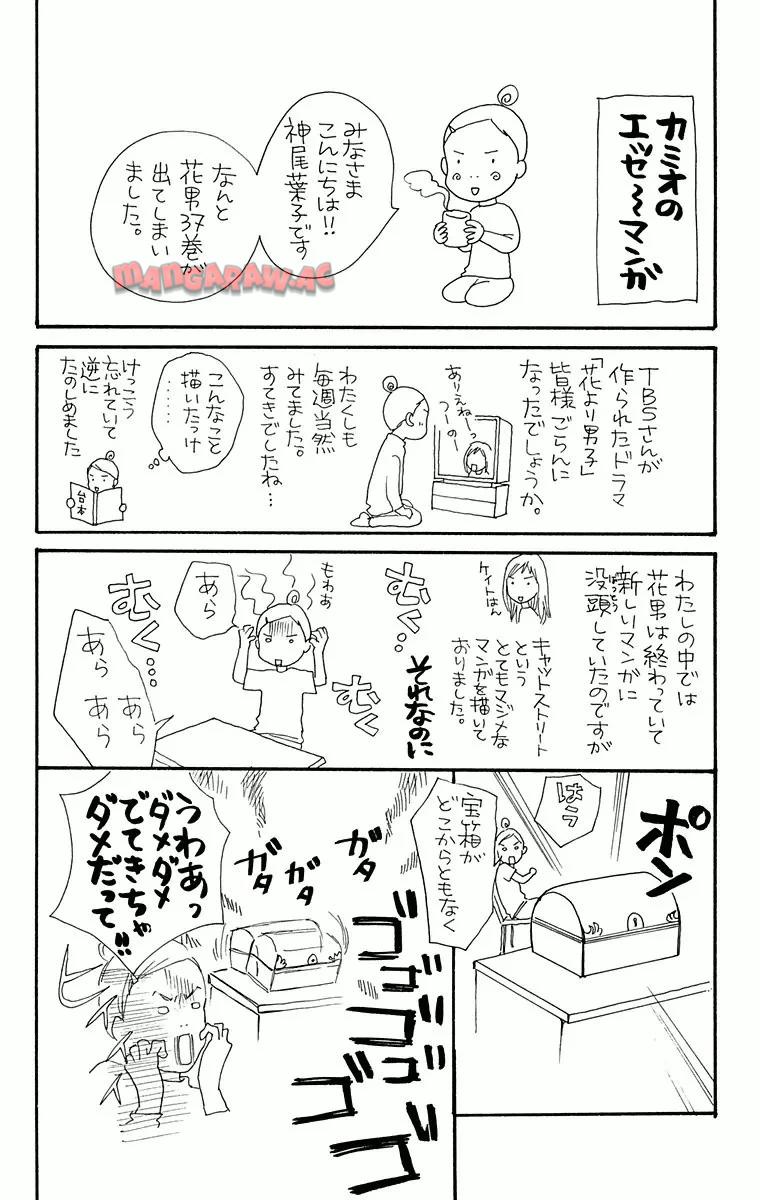 カミオの
エッセ〜マンガ
みなさま
こんにちは!!
神尾葉子です
なんと
花男37巻が
出てしまい
ました。
MANGARAW.AC
TBSさんが
作られたドラマ
「花より男子」
皆様ごらんに
なったでしょうか。
ありえねーっ
つーの
わたくしも
毎週当然
みてました。
すてきでしたね…
こんなこと
描いたっけ
……
けっこう
忘れていて
逆に
たのしめました
台本
わたしの中では
花男は終わっていて
新しいマンガに
没頭していたのですが
ぼっとう
ケイトはん
キャットストリート
という
とてもマジメな
マンガを描いて
おりました。
それなのに
むく…
むく
むく…
もわあ
あら
あら
あら
あら
ポン
はう
宝箱が
どこからともなく
ガタ
ガタ
ガタ
ゴゴゴゴゴゴ
うわあっ
ダメダメ
でてきちゃ
ダメだって!!